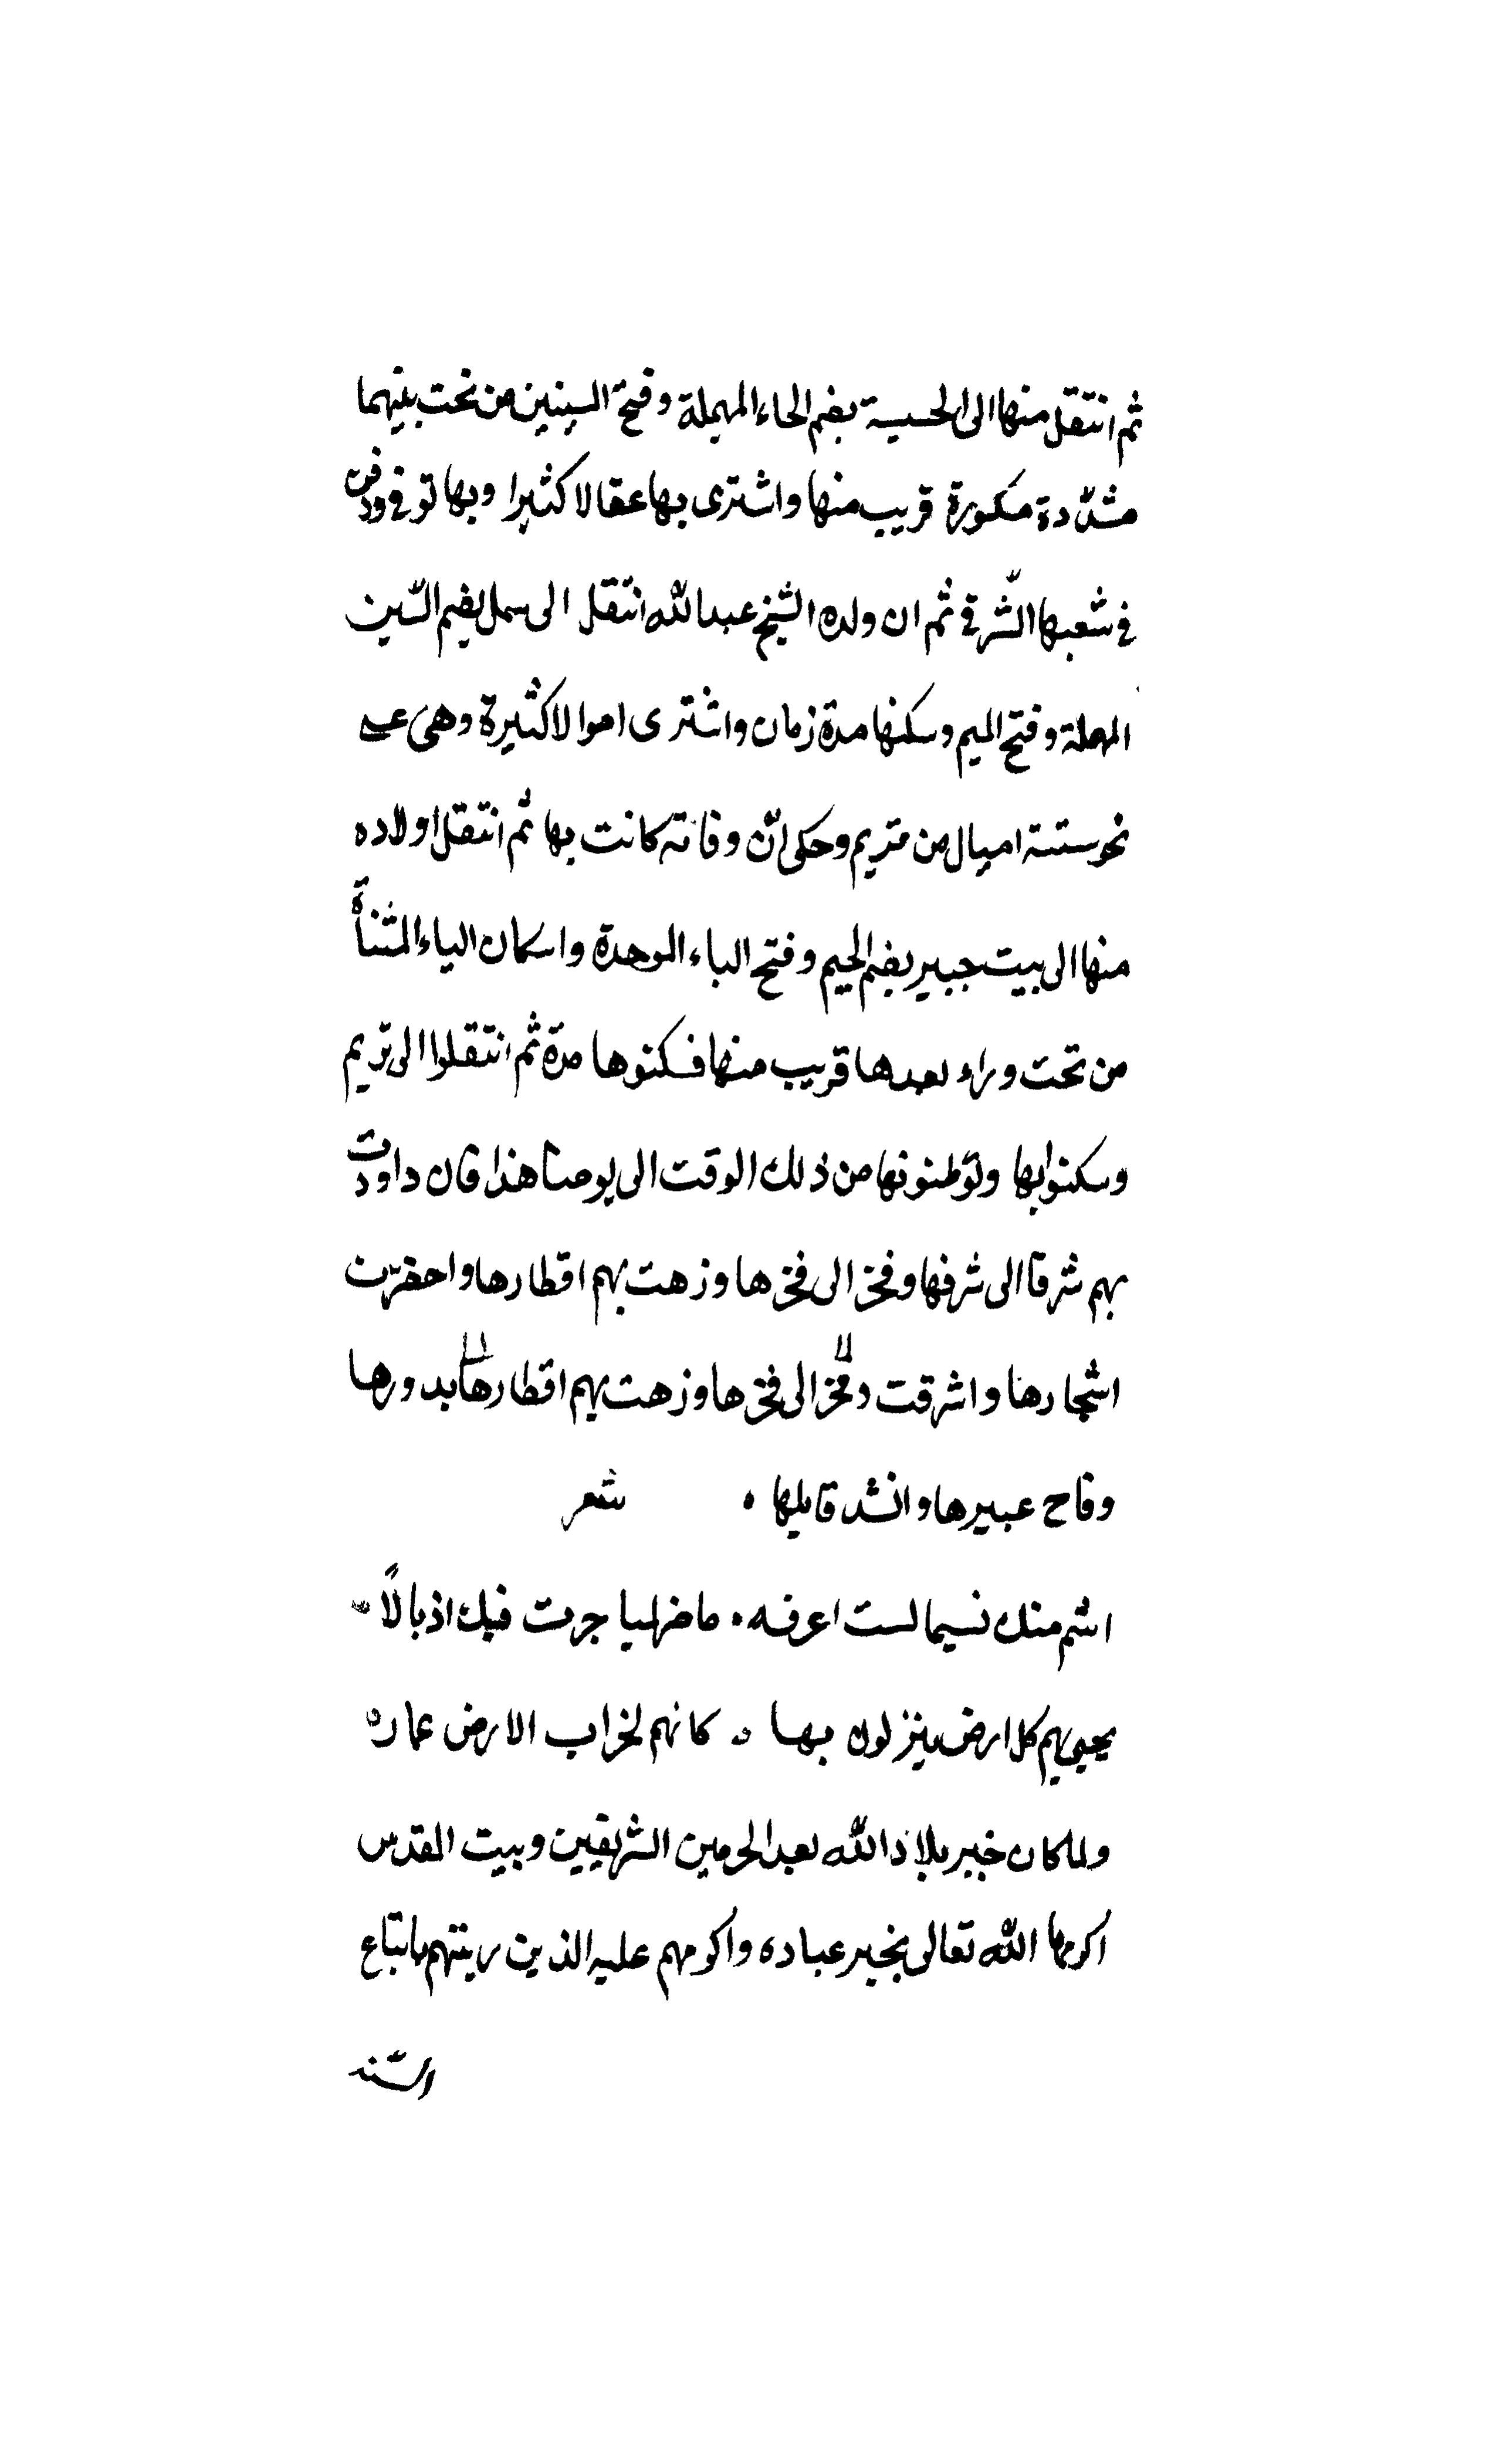 ثم انتقل منها الى الحسيسة بضم الحاء المهملة وفتح السينين من تحت بينهما
مشدّدة مكسورة قريب منها واشترى بها عقالا كثيرا وبها توفى ودفن
فى شعبها الشّرقى ثم ان ولده الشيخ عبدالله انتقل الى سمل بضم السّين
المهملة وفتح الميم وسكنها مدة زمان واشترى اموالا كثيرة وهى على
نحو ستة اميال من تريم وحكى انّ وفاته كانت بها ثم انتقل اولاده
منها الى بيت جبير بضم الجيم وفتح الباء الموحدة واسكان الياء المثناة
من تحت وراء بعدها قريب منها فسكنوها مدّة ثم انتقلوا الى تريم
وسكنوا بها وتوطنونها من ذلك الوقت الى يومنا هذا فازدادت
بهم شرفا الى شرفها وفخرا الى فخرها وزهت بهم اقطارها واخضرّت
اشجارها واشرقت وفخرا الى فخرها وزهت بهم اقطارها بدورها
وفاح عبيرها وانشد قايلها شعر
اشم منك نسيما لست اعرفه ما ضر لميا جرت فيك اذيالًا
يحيى بهم كل ارض ينزلون بها كانهم لخراب الارض عماره
ولما كان خير بلاد الله بعد الحرمين الشريفين وبيت المقدس
اكرمها الله تعالى بخير عباده واكرمهم عليه الذين زينتهم باتباع
السّنه